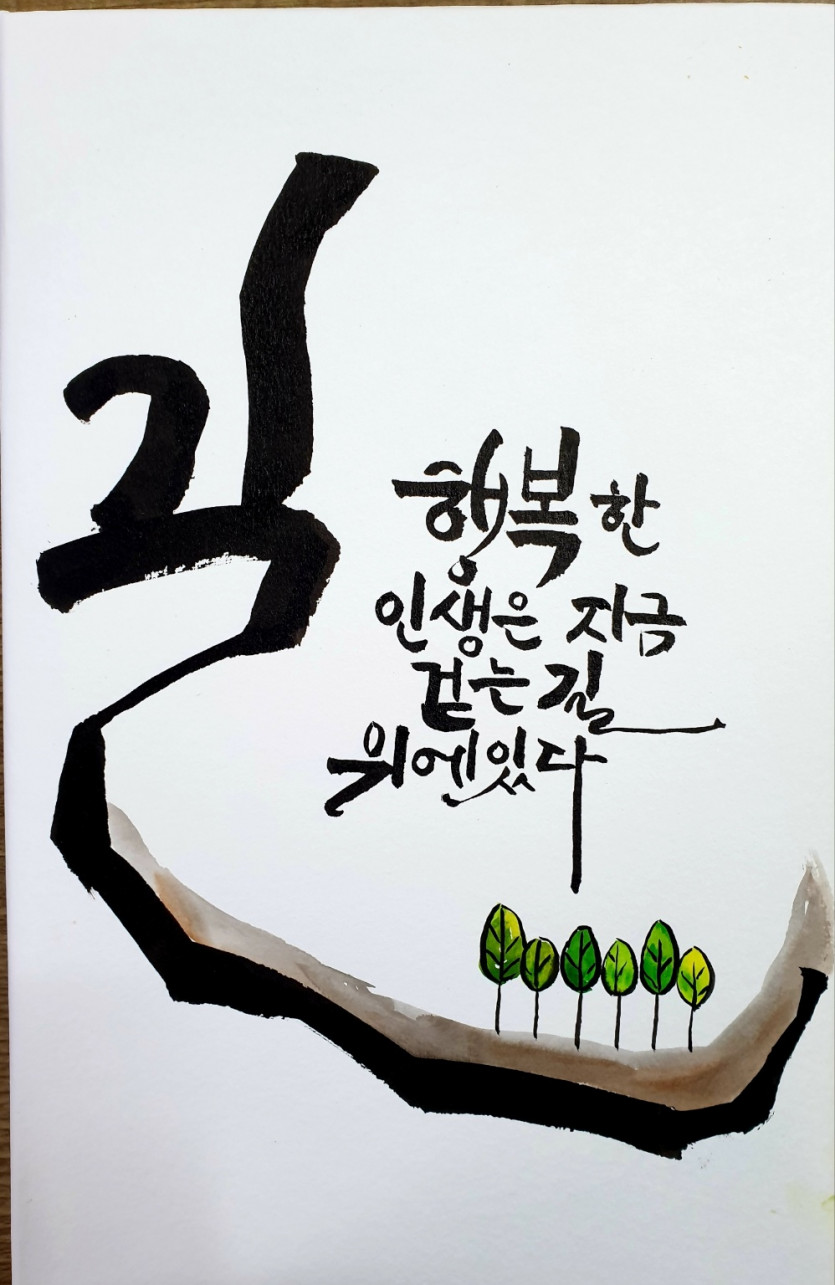 길
행복한
인생은 지금
걷는 길
위에 있다